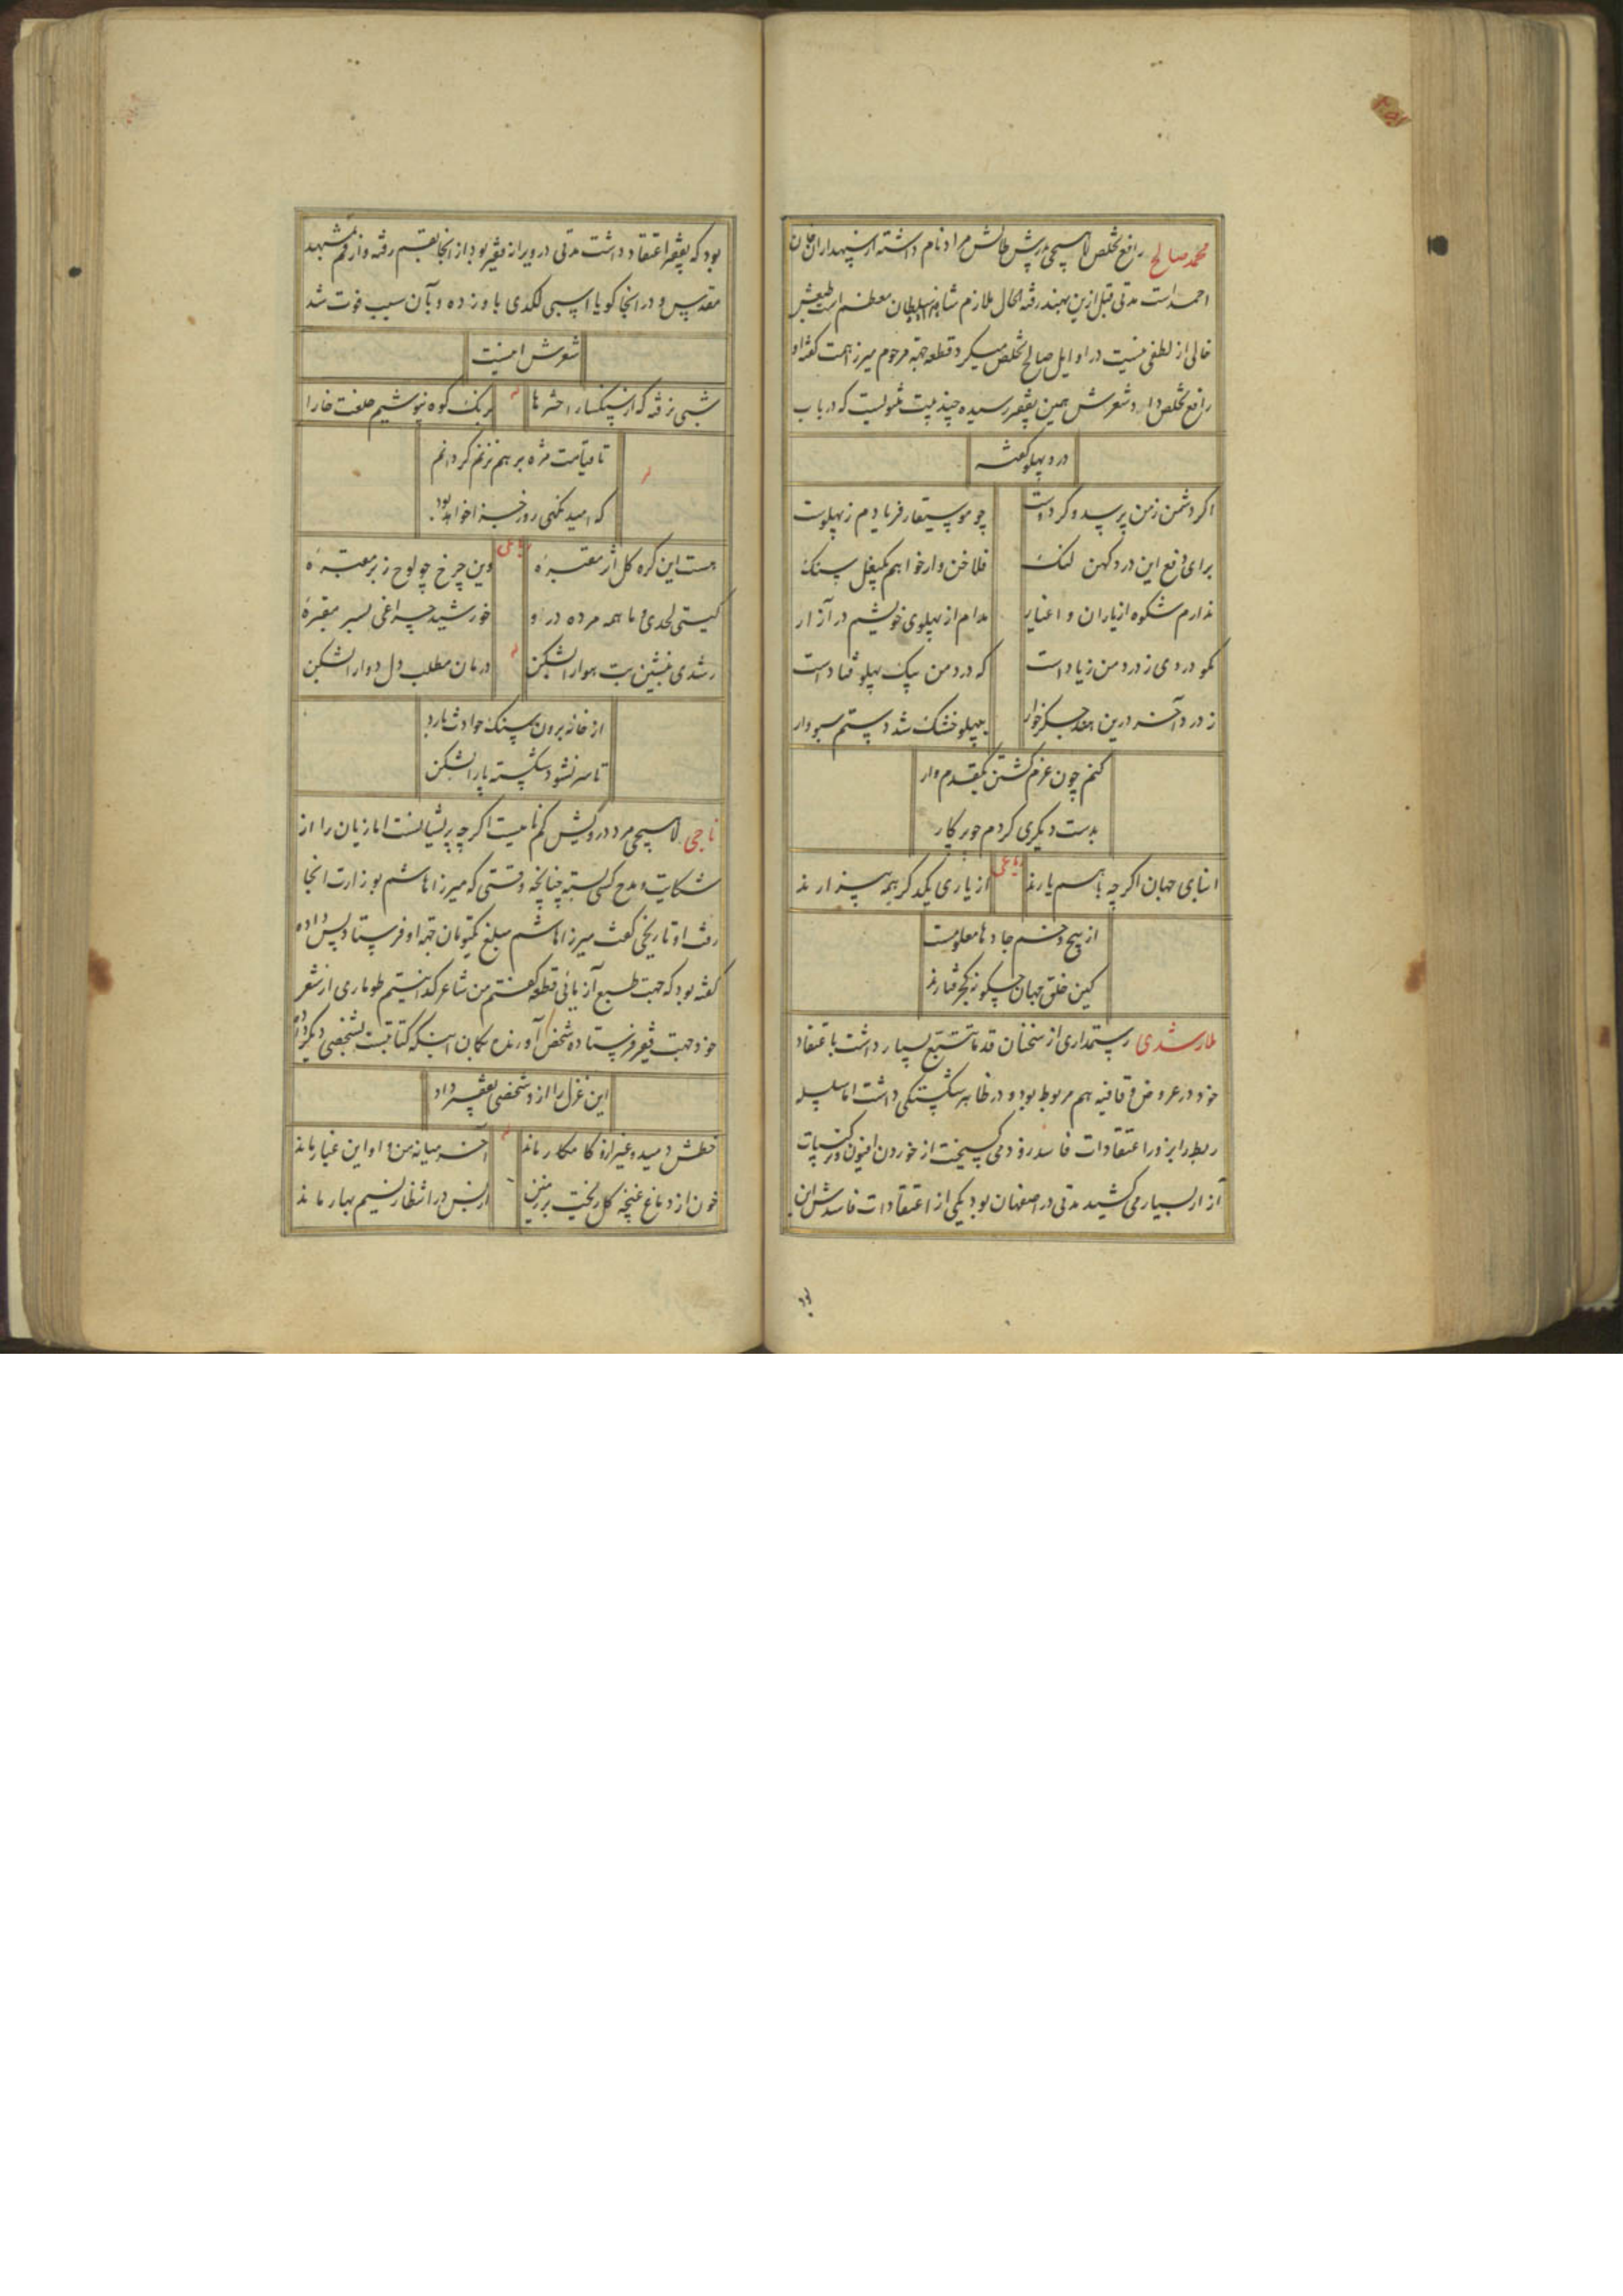 محمد صالح رافع تخلص لاهیجی پدرش طالش مراد نام داشته از سپهداران خان
احمد است مدتی قبل ازین بهند رفته الحال ملازم شاهزاده سلطان معظم است طبعش
خالی از لطفی نیست در اوایل صالح تخلص میکرد قطعه جهة مرحوم میرزا همت گفته او
رافع تخلص داد و شعرش همین بفقیر رسیده چند بیت مثنویست که در باب
درد پهلو گفته
اکر دشمن زمن پرسد و کر دوست
چو موسیقار فریادم ز پهلوست
برای دفع این درد کهن لنک
فلاخن وار خواهم یکبغل سنک
ندارم شکوه از یاران و اغیار
مدام از پهلوی خویشم در آزار
مکو دردی ز درد من زیاد است
که درد من بیک پهلو فتاد است
ز درد آخر درین عهد جکرخوار
بپهلو خشک شد دستم سبو وار
کنم چون عزم کشتن یکقدم وار
بدست دیکری کردم چو پرکار
ابنای جهان اکر چه با هم یارند
رباعی
از یاری یکدکر همه بیزارند
از پیچ و خم جادها معلومست
کین خلق جهان چکونه کجرفتارند
ملا رشدی رستمداری از سخنان قدما تتبع بسیار داشت باعتقاد
خود در عروض و قافیه هم مربوط بود و در ظاهر شکستکی داشت اما سلسله
ربط را بزور اعتقادات فاسد زود می کسیخت از خوردن افیون و ترکیبات
آزار بسیار می کشید مدتی در اصفهان بود یکی از اعتقادات فاسدش این
بود
بود که بفقیر اعتقاد داشت مدتی در ویرانه فقیر بود از انجا بقم رفته و از قم بمشهد
مقدس و در انجا کویا اسبی لکدی باو زده و بآن سبب فوت شد
شعرش اینست
شبی نرفته که از سنکسار احشرها
برنک کوه نپوشیم خلعت خارا
تا قیامت مژه بر هم نزنم کر دانم
که امید نکهی روز جزا خواهد بود
هست این کره کل اثر مقبرۀ
رباعی
وین چرخ چو لوح زبر مقبرۀ
کیتی لحدی و ما همه مرده در او
خورشید چراغی بسر مقبرۀ
رشدی بنشین بت هوا را بشکن
درمان مطلب دل دوا را بشکن
از خانه برون سنک حوادث بارد
تا سر نشود شکسته پا را بشکن
ناجی لاهیجی مرد درویش کم نامیست اکر چه پریشانست اما زبان را از
شکایت و مدح کسی بسته چنانچه وقتی که میرزا هاشم بوزارت انجا
رفت او تاریخی کفت میرزا هاشم مبلغ یکتومان جهة او فرستاد پس داده
کفته بود که جهت طبع آزمائی قطعه کفتم من شاعر کدا نیستم طوماری از شعر
خود جهت فقیر فرستاده شخص آورنده بکمان اینکه کتابت بشخصی دیکر داده
این غزل را ازو شخصی بفقیر داد
خطش دمید و غیر ازو کامکار ماند
آخر میانه من و او این غبار ماند
خون از دماغ غنچه کل ریخت بر زمین
از بس در انتظار نسیم بهار ماند